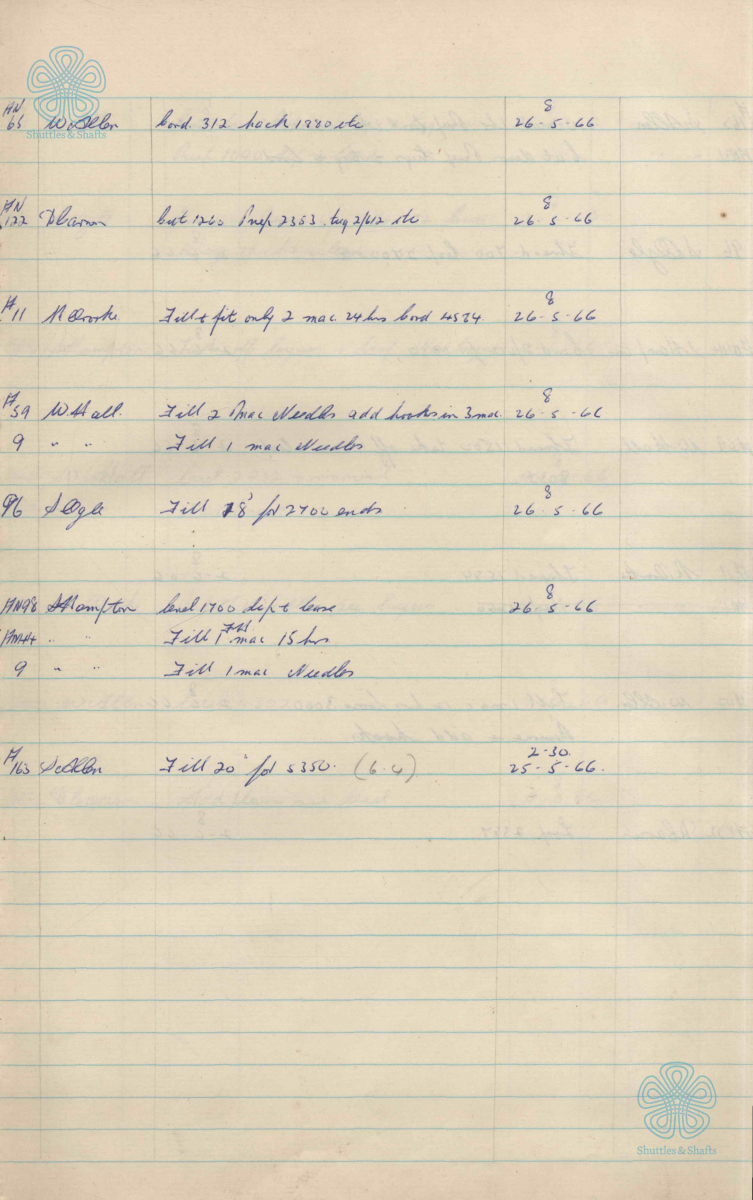 Shuttles & Shafts
8
AN
65 W. Allen Cord. 312 hack 1880 etc 26-5-66
8
AN
122 Cut 1260 Prep. 2353. tug 2/612 etc 26-5-66
8
A
11 Fill + fit only 2 mac. 24 hrs Cord 4584 26-5-66
8
A
59 W Hall. Fill 2 mac Needles add hooks in 3 mac. 26-5-66
9 " " Fill 1 mac Needles
8
96 S Ogle Fill 18' for 2700 ends 26-5-66
8
AN98 S Hampton 1700 dept lease 26-5-66
AN44 " " Fill 1 mac 15 hrs
9 " " Fill 1 mac Needles
2-30.
A
163 S Allen Fill 20' for 5350. (6.4) 25-5-66.
Shuttles & Shafts